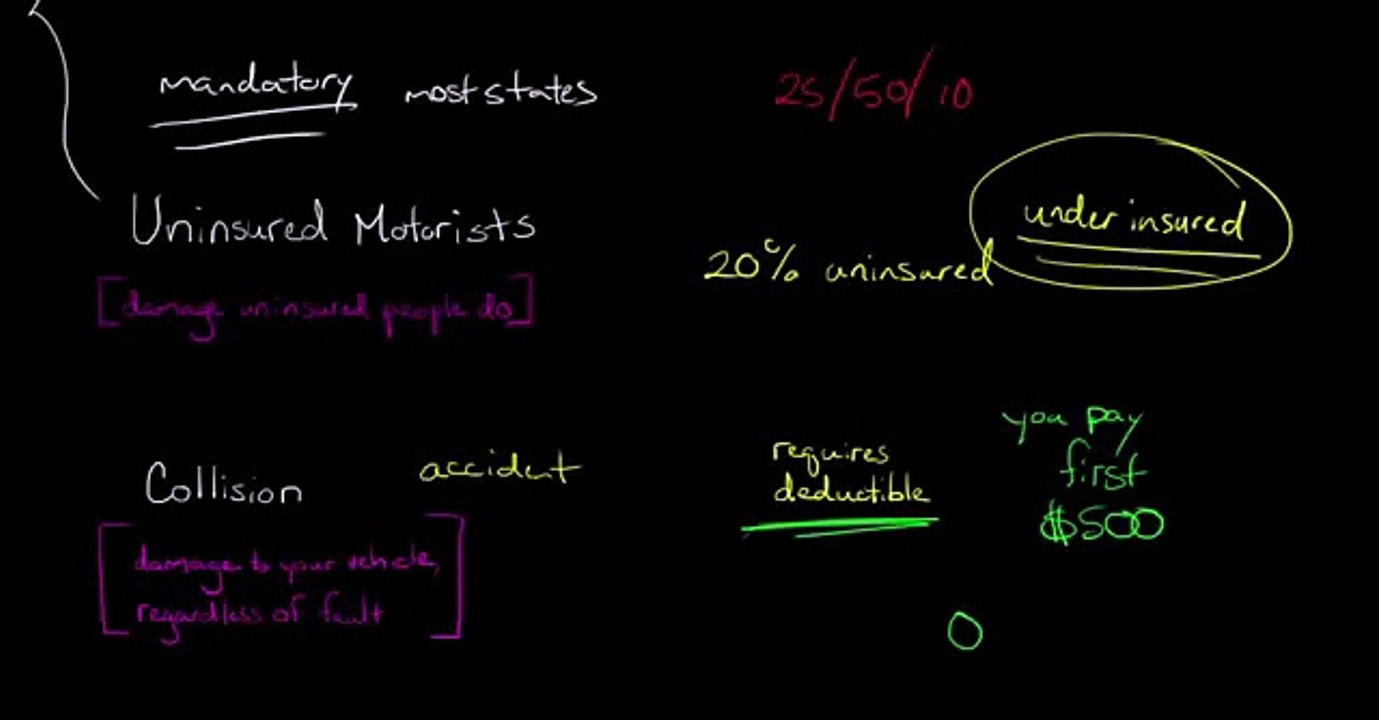 mandatory most states 25/50/10
Uninsured Motorists
under insured
20% uninsured
[damage uninsured people do]
you pay
first
$500
requires
deductible
Collision accident
[damage to your vehicle,
regardless of fault]
0